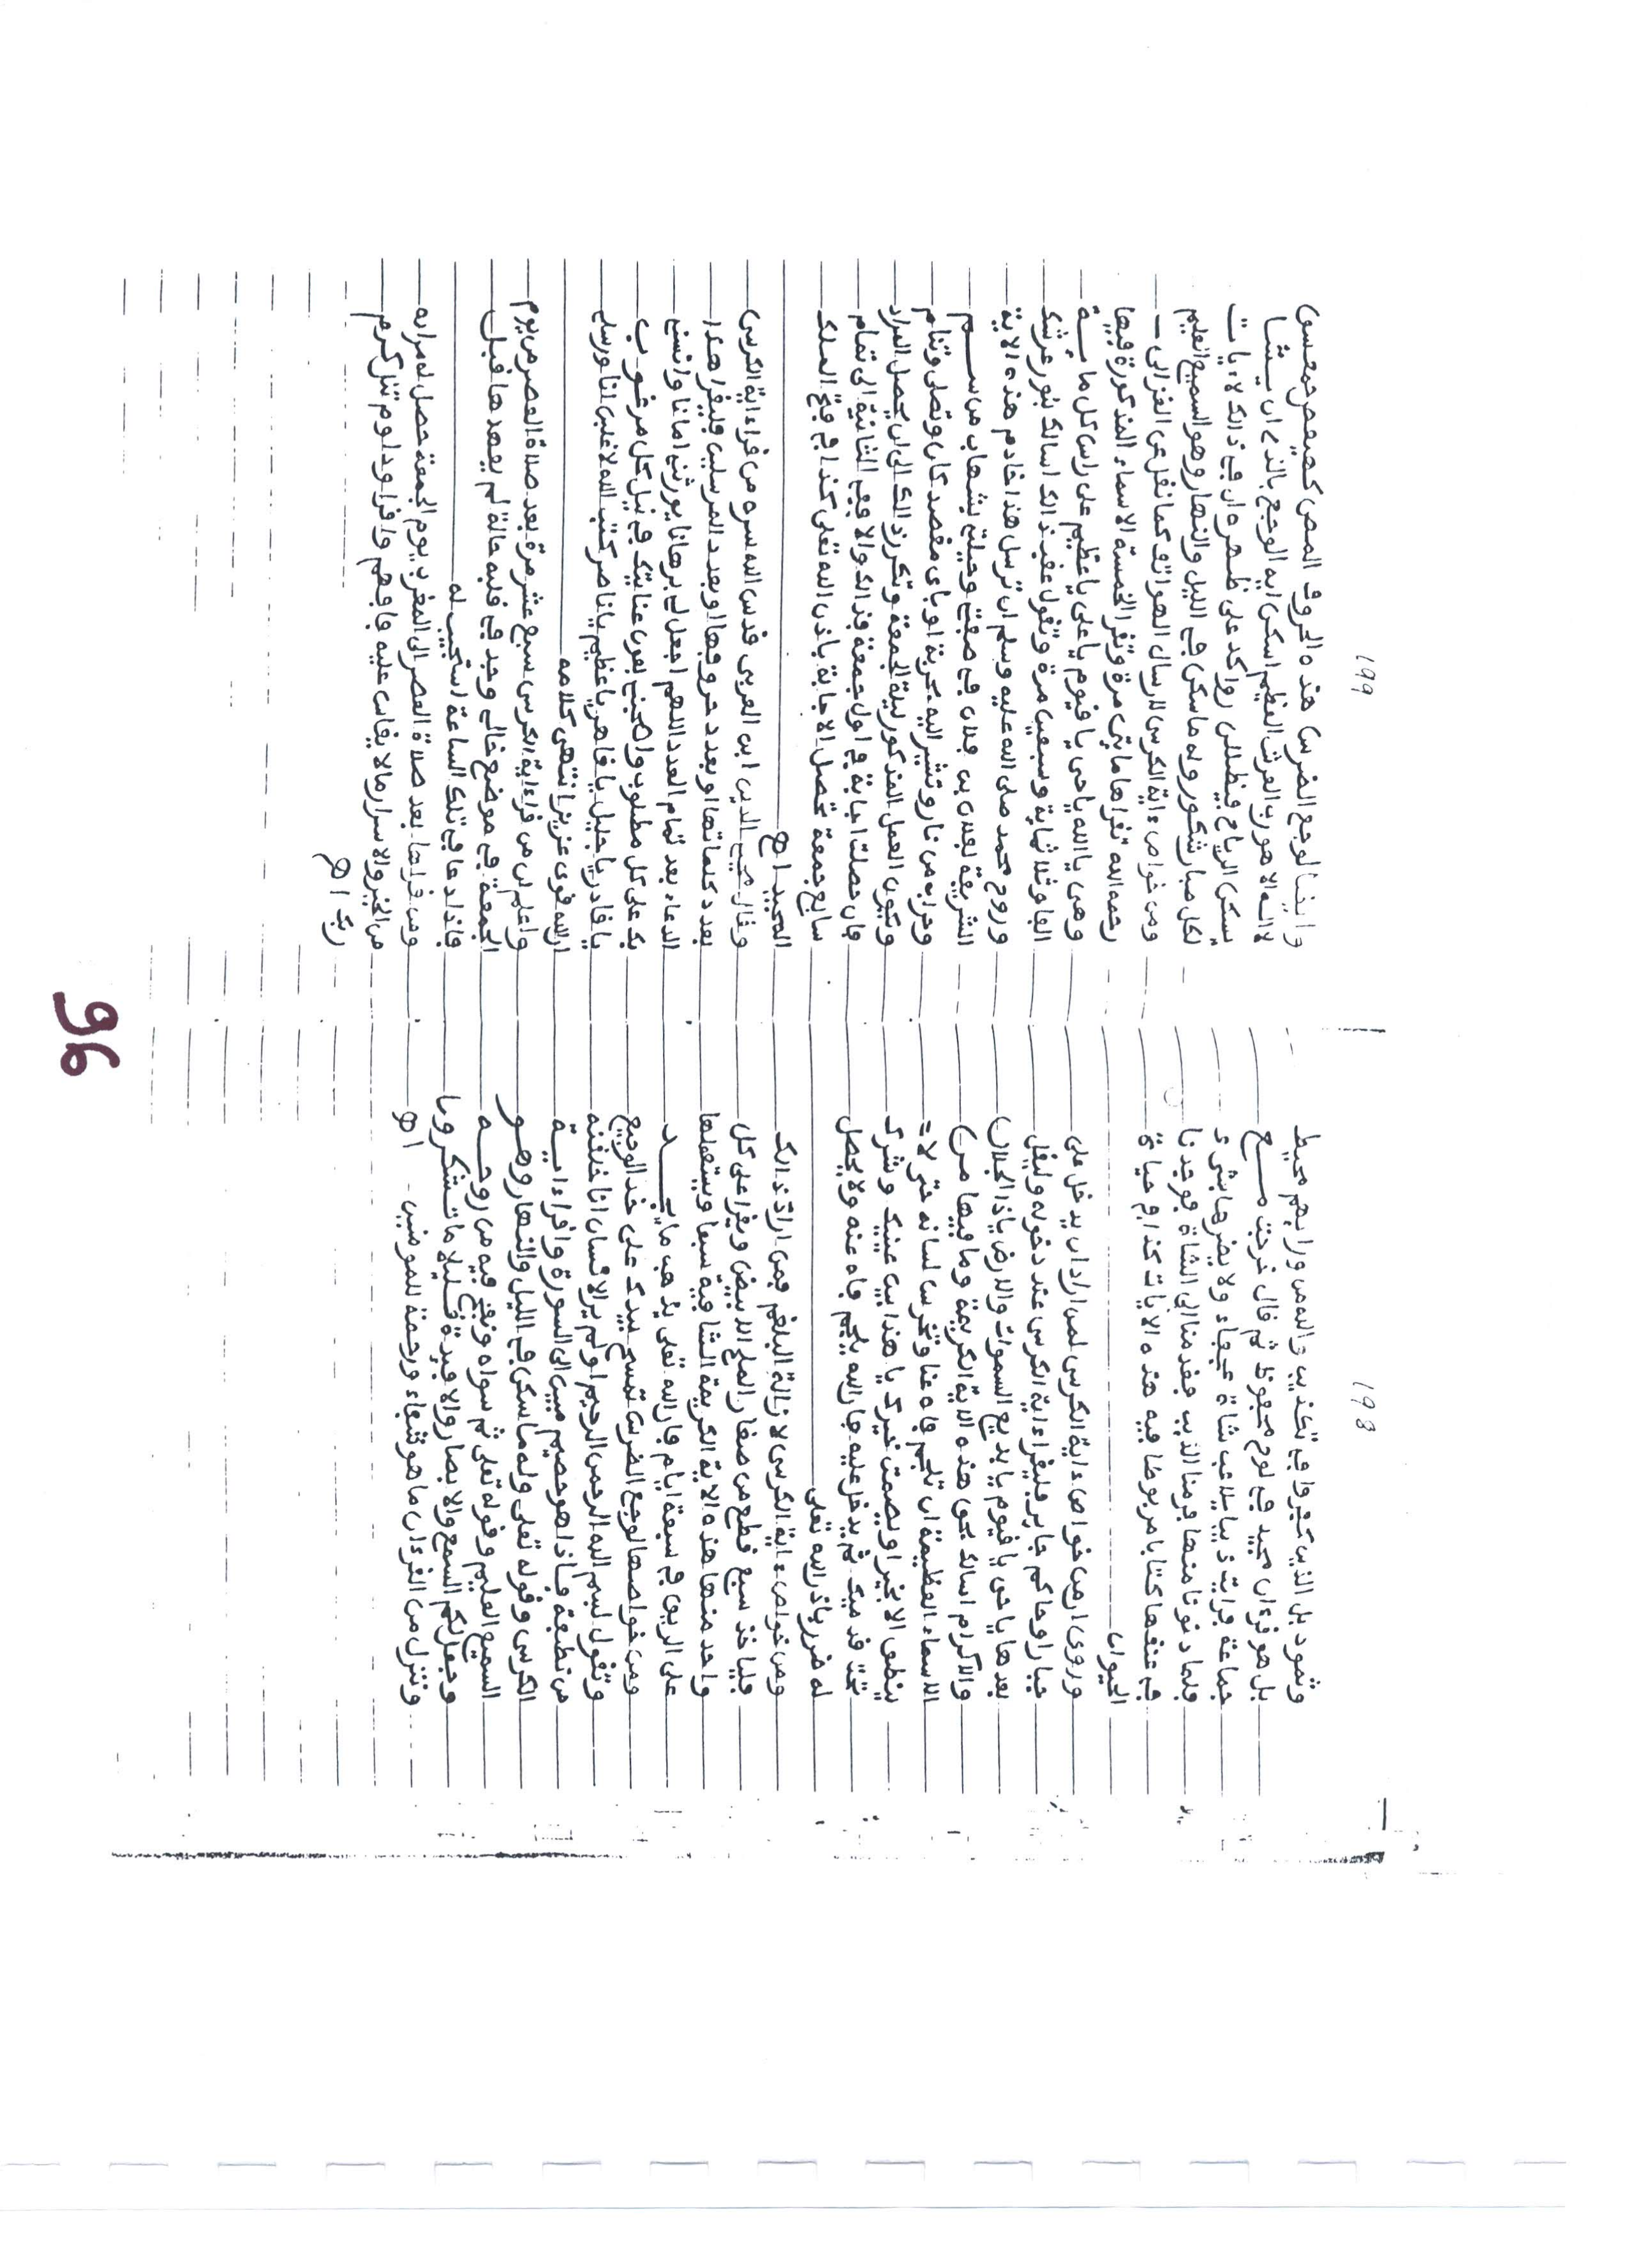 198
وثمود بل الذين كفروا في تكذيب والله من ورايهم محيط
بل هو قرءان مجيد في لوح محفوظ ثم قال خرجت مع
جماعة فرايت ذيبا يلاعب شاة عجفاء ولا يضرها بشيء
فلما دنونا منها فر منا الذيب فقدمنا الى الشاة فوجدنا
في عنقها كتابا مربوطا فيه هذه الايات كذا في حياة
الحيوان
وروي ان من خواص ءاية الكرسى لمن اراد ان يدخل على
جبار او حاكم جاير فليقرا ءاية الكرسى عند دخوله وليقل
بعدها يا حي يا قيوم يا بديع السموات والارض يا ذا الجلال
والاكرام اسالك بحق هذه الاية الكريمة وما فيها من
الاسماء العظيمة ان تلجم فاه عنا وتخرس لسانه حتى لا
ينطق الا بخير او يصمت خيرك يا هذا بين عينيك وشرك
تحت قدميك ثم يدخل عليه فان الله يلجم فاه عنه ولا يحصل
له ضرر باذن الله تعلى
ومن خواص ءاية الكرسى لازالة البلغم فمن اراد ذالك
فلياخذ سبع قطع من صغار الملح الابيض ويقرا على كل
واحد منها هذه الاية الكريمة الشافية سبعا ويستعملها
على الريق في سبعة ايام فان الله تعلى يذهب ما يجد
ومن خواصها لوجع الضرس تمسح بيدك على خد الوجيع
وتقول بسم الله الرحمن الرحيم اولم ير الانسان انا خلقنه
من نطفة فاذا هو خصيم مبين الى السورة واقرا ءاية
الكرسى وقوله تعلى وله ما سكن في الليل والنهار وهو
السميع العليم وقوله تعلى ثم سواه ونفخ فيه من روحه
وجعل لكم السمع والابصار والافيدة قليلا ما تشكرون
وننزل من القرءان ما هو شفاء ورحمة للمومنين اهـ
199
وايضا لوجع الضرس هذه الحروف المص كهيعص حمعسق
لا اله الا هو رب العرش العظيم اسكن ايه الوجع بالذي ان يشا
يسكن الرياح فيظللن رواكد على ظهره ان في ذالك لايات
لكل صبار شكور وله ما سكن في الليل والنهار وهو السميع العليم
ومن خواص ءاية الكرسى لارسال الهواتف كما نقل عن الغزالى
رحمه الله تقراها مايتي مرة وتقرا الخمسة الاسماء المذكورة فيها
وهي يا الله يا حي يا قيوم يا على يا عظيم على راس كل ماية
الفا وثلاثماية وسبعين مرة وتقول عقب ذالك اسالك بنور عرشك
وروح محمد صلى الله عليه وسلم ان ترسل هذا خادم هذه الاية
الشريفة لفلان بن فلان في صفتي وحيلتي بشهاب من سم
وحراب من نار وتشير اليه بحربة او باي مقصد كان وتصلى وتنام
ويكون العمل المذكور ليلة الجمعة وتكرر ذالك الى ان يحصل المراد
فان حصلت اجابة في اول جمعة فذالك والا ففي الثانية الى تمام
سابع جمعة تحصل الاجابة باذن الله تعلى كذا في فتح الملك
المجيد اهـ
وقال محيي الدين ابن العربى قدس الله سره من قراءاية الكرسى
بعدد كلماتها او بعدد حروفها او بعدد المرسلين فليقرا هذا
الدعاء بعد تمام العدد اللهم اجعل لي برهانا يورثني امانا وانسني
بك على كل مطلوب واصحبني بعون عنايتك في نيل كل مرغوب
يا قادر يا جليل يا قاهر يا عظيم يا ناصر كتب الله لاغلبن انا ورسلي
ان الله قوي عزيز انتهى كلامه
واعلم ان من قراءاية الكرسى سبع عشر مرة بعد صلاة العصر من يوم
الجمعة في موضع خالي وجد في قلبه حالة لم يعهدها قبل
فاذا دعا في تلك الساعة استجيب له
ومن قراها بعد صلاة العصر الى المغرب يوم الجمعة حصل له مراده
من الخير والاسرار ما لا يقاس عليه فافهم واقرا وداوم تنل كرم
ربك اهـ
96